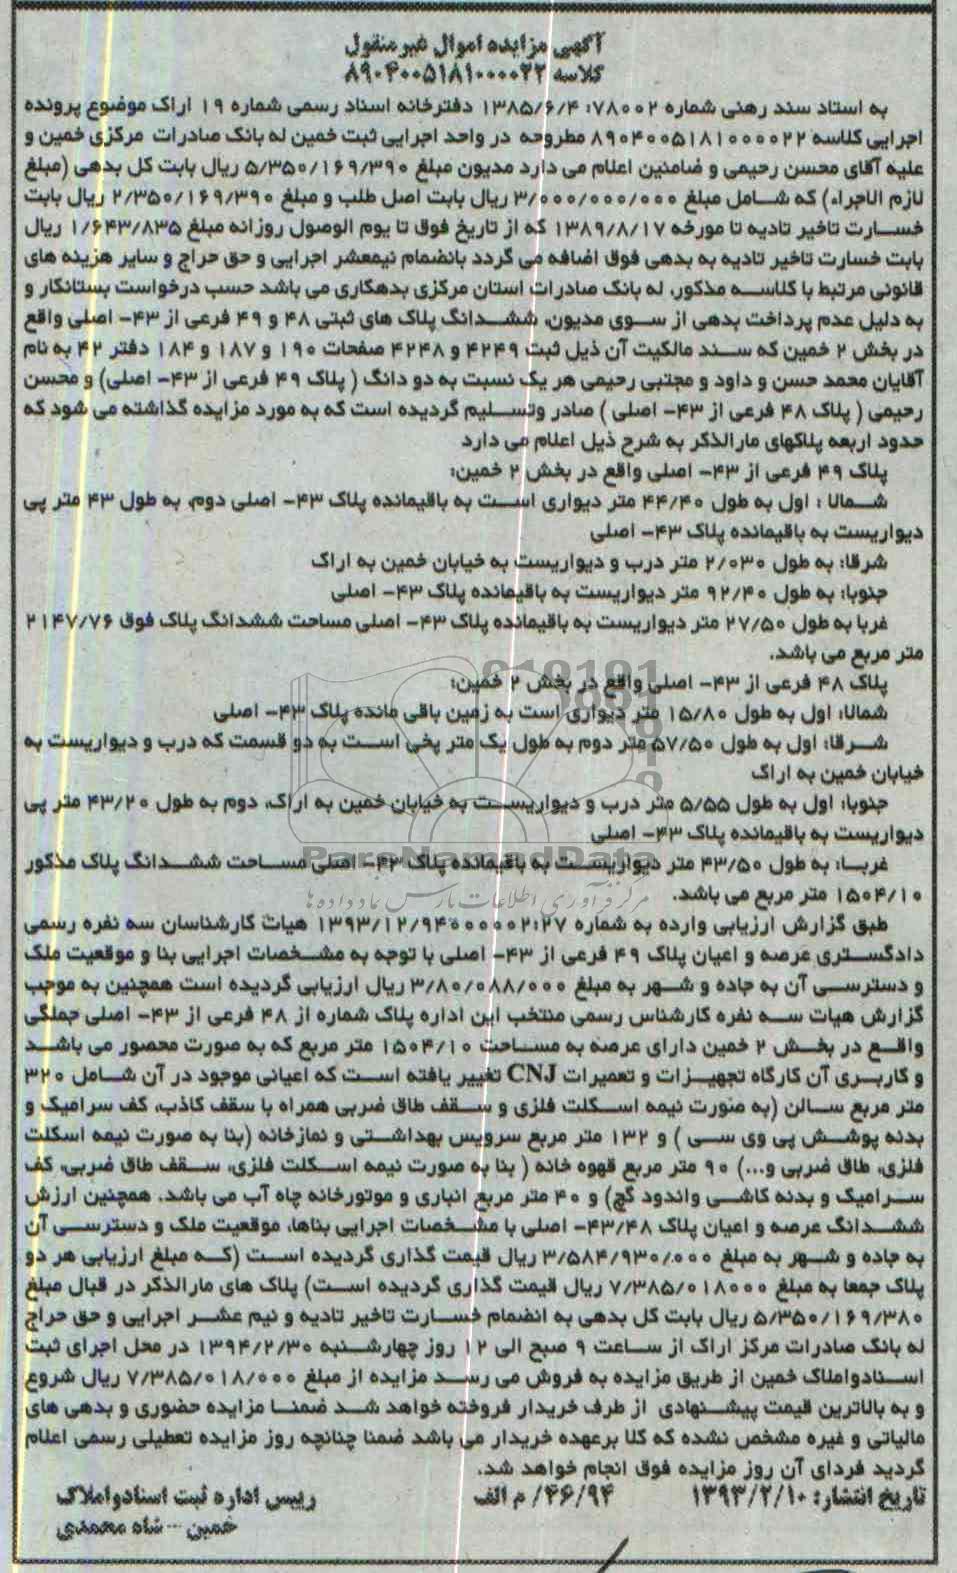 آگهی مزایده اموال غیرمنقول
کلاسه ۸۹۰۴۰۰۵۱۸۱۰۰۰۰۲۲
به استناد سند رهنی شماره ۷۸۰۰۲: ۱۳۸۵/۶/۴ دفترخانه اسناد رسمی شماره ۱۹ اراک موضوع پرونده
اجرایی کلاسه ۸۹۰۴۰۰۵۱۸۱۰۰۰۰۲۲ مطروحه در واحد اجرایی ثبت خمین له بانک صادرات مرکزی خمین و
علیه آقای محسن رحیمی و ضامنین اعلام می دارد مدیون مبلغ ۵/۳۵۰/۱۶۹/۳۹۰ ریال بابت کل بدهی (مبلغ
لازم الاجراء) که شامل مبلغ ۳/۰۰۰/۰۰۰/۰۰۰ ریال بابت اصل طلب و مبلغ ۲/۳۵۰/۱۶۹/۳۹۰ ریال بابت
خسارت تاخیر تادیه تا مورخه ۱۳۸۹/۸/۱۷ که از تاریخ فوق تا یوم الوصول روزانه مبلغ ۱/۶۴۳/۸۳۵ ریال
بابت خسارت تاخیر تادیه به بدهی فوق اضافه می گردد بانضمام نیمعشر اجرایی و حق حراج و سایر هزینه های
قانونی مرتبط با کلاسه مذکور، له بانک صادرات استان مرکزی بدهکاری می باشد حسب درخواست بستانکار و
به دلیل عدم پرداخت بدهی از سوی مدیون، ششدانگ پلاک های ثبتی ۴۸ و ۴۹ فرعی از ۴۳- اصلی واقع
در بخش ۲ خمین که سند مالکیت آن ذیل ثبت ۴۲۴۹ و ۴۲۴۸ صفحات ۱۹۰ و ۱۸۷ و ۱۸۴ دفتر ۴۲ به نام
آقایان محمد حسن و داود و مجتبی رحیمی هر یک نسبت به دو دانگ ( پلاک ۴۹ فرعی از ۴۳- اصلی) و محسن
رحیمی ( پلاک ۴۸ فرعی از ۴۳- اصلی ) صادر وتسلیم گردیده است که به مورد مزایده گذاشته می شود که
حدود اربعه پلاکهای مارالذکر به شرح ذیل اعلام می دارد
پلاک ۴۹ فرعی از ۴۳- اصلی واقع در بخش ۲ خمین:
شمالا : اول به طول ۴۴/۴۰ متر دیواری است به باقیمانده پلاک ۴۳- اصلی دوم، به طول ۴۳ متر پی
دیواریست به باقیمانده پلاک ۴۳- اصلی
شرقا: به طول ۲/۰۳۰ متر درب و دیواریست به خیابان خمین به اراک
جنوبا: به طول ۹۲/۴۰ متر دیواریست به باقیمانده پلاک ۴۳- اصلی
غربا به طول ۲۷/۵۰ متر دیواریست به باقیمانده پلاک ۴۳- اصلی مساحت ششدانگ پلاک فوق ۲۱۴۷/۷۶
متر مربع می باشد.
پلاک ۴۸ فرعی از ۴۳- اصلی واقع در بخش ۲ خمین:
شمالا: اول به طول ۱۵/۸۰ متر دیواری است به زمین باقی مانده پلاک ۴۳- اصلی
شرقا: اول به طول ۵۷/۵۰ متر دوم به طول یک متر پخی است به دو قسمت که درب و دیواریست به
خیابان خمین به اراک
جنوبا: اول به طول ۵/۵۵ متر درب و دیواریست به خیابان خمین به اراک، دوم به طول ۴۳/۲۰ متر پی
دیواریست به باقیمانده پلاک ۴۳- اصلی
ParsNamadData
غربا: به طول ۴۳/۵۰ متر دیواریست به باقیمانده پلاک ۴۳- اصلی مساحت ششدانگ پلاک مذکور
۱۵۰۴/۱۰ متر مربع می باشد.
مرکز فرآوری اطلاعات پارس نماد داده ها
طبق گزارش ارزیابی وارده به شماره ۱۳۹۳/۱۲/۹۴۰۰۰۰۰۲:۲۷ هیات کارشناسان سه نفره رسمی
دادگستری عرصه و اعیان پلاک ۴۹ فرعی از ۴۳- اصلی با توجه به مشخصات اجرایی بنا و موقعیت ملک
و دسترسی آن به جاده و شهر به مبلغ ۳/۸۰/۰۸۸/۰۰۰ ریال ارزیابی گردیده است همچنین به موجب
گزارش هیات سه نفره کارشناس رسمی منتخب این اداره پلاک شماره از ۴۸ فرعی از ۴۳- اصلی جملگی
واقع در بخش ۲ خمین دارای عرصه به مساحت ۱۵۰۴/۱۰ متر مربع که به صورت محصور می باشد
و کاربری آن کارگاه تجهیزات و تعمیرات CNJ تغییر یافته است که اعیانی موجود در آن شامل ۳۲۰
متر مربع سالن (به صورت نیمه اسکلت فلزی و سقف طاق ضربی همراه با سقف کاذب، کف سرامیک و
بدنه پوشش پی وی سی ) و ۱۳۲ متر مربع سرویس بهداشتی و نمازخانه (بنا به صورت نیمه اسکلت
فلزی، طاق ضربی و...) ۹۰ متر مربع قهوه خانه ( بنا به صورت نیمه اسکلت فلزی، سقف طاق ضربی، کف
سرامیک و بدنه کاشی واندود گچ) و ۴۰ متر مربع انباری و موتورخانه چاه آب می باشد. همچنین ارزش
ششدانگ عرصه و اعیان پلاک ۴۳/۴۸- اصلی با مشخصات اجرایی بناها، موقعیت ملک و دسترسی آن
به جاده و شهر به مبلغ ۳/۵۸۴/۹۳۰/۰۰۰ ریال قیمت گذاری گردیده است (که مبلغ ارزیابی هر دو
پلاک جمعا به مبلغ ۷/۳۸۵/۰۱۸۰۰۰ ریال قیمت گذاری گردیده است) پلاک های مارالذکر در قبال مبلغ
۵/۳۵۰/۱۶۹/۳۸۰ ریال بابت کل بدهی به انضمام خسارت تاخیر تادیه و نیم عشر اجرایی و حق حراج
له بانک صادرات مرکز اراک از ساعت ۹ صبح الی ۱۲ روز چهارشنبه ۱۳۹۴/۲/۳۰ در محل اجرای ثبت
اسنادواملاک خمین از طریق مزایده به فروش می رسد مزایده از مبلغ ۷/۳۸۵/۰۱۸/۰۰۰ ریال شروع
و به بالاترین قیمت پیشنهادی از طرف خریدار فروخته خواهد شد ضمنا مزایده حضوری و بدهی های
مالیاتی و غیره مشخص نشده که کلا برعهده خریدار می باشد ضمنا چنانچه روز مزایده تعطیلی رسمی اعلام
گردید فردای آن روز مزایده فوق انجام خواهد شد.
تاریخ انتشار: ۱۳۹۳/۲/۱۰ ۴۶/۹۴/ م الف رییس اداره ثبت اسنادواملاک
خمین - شاه محمدی